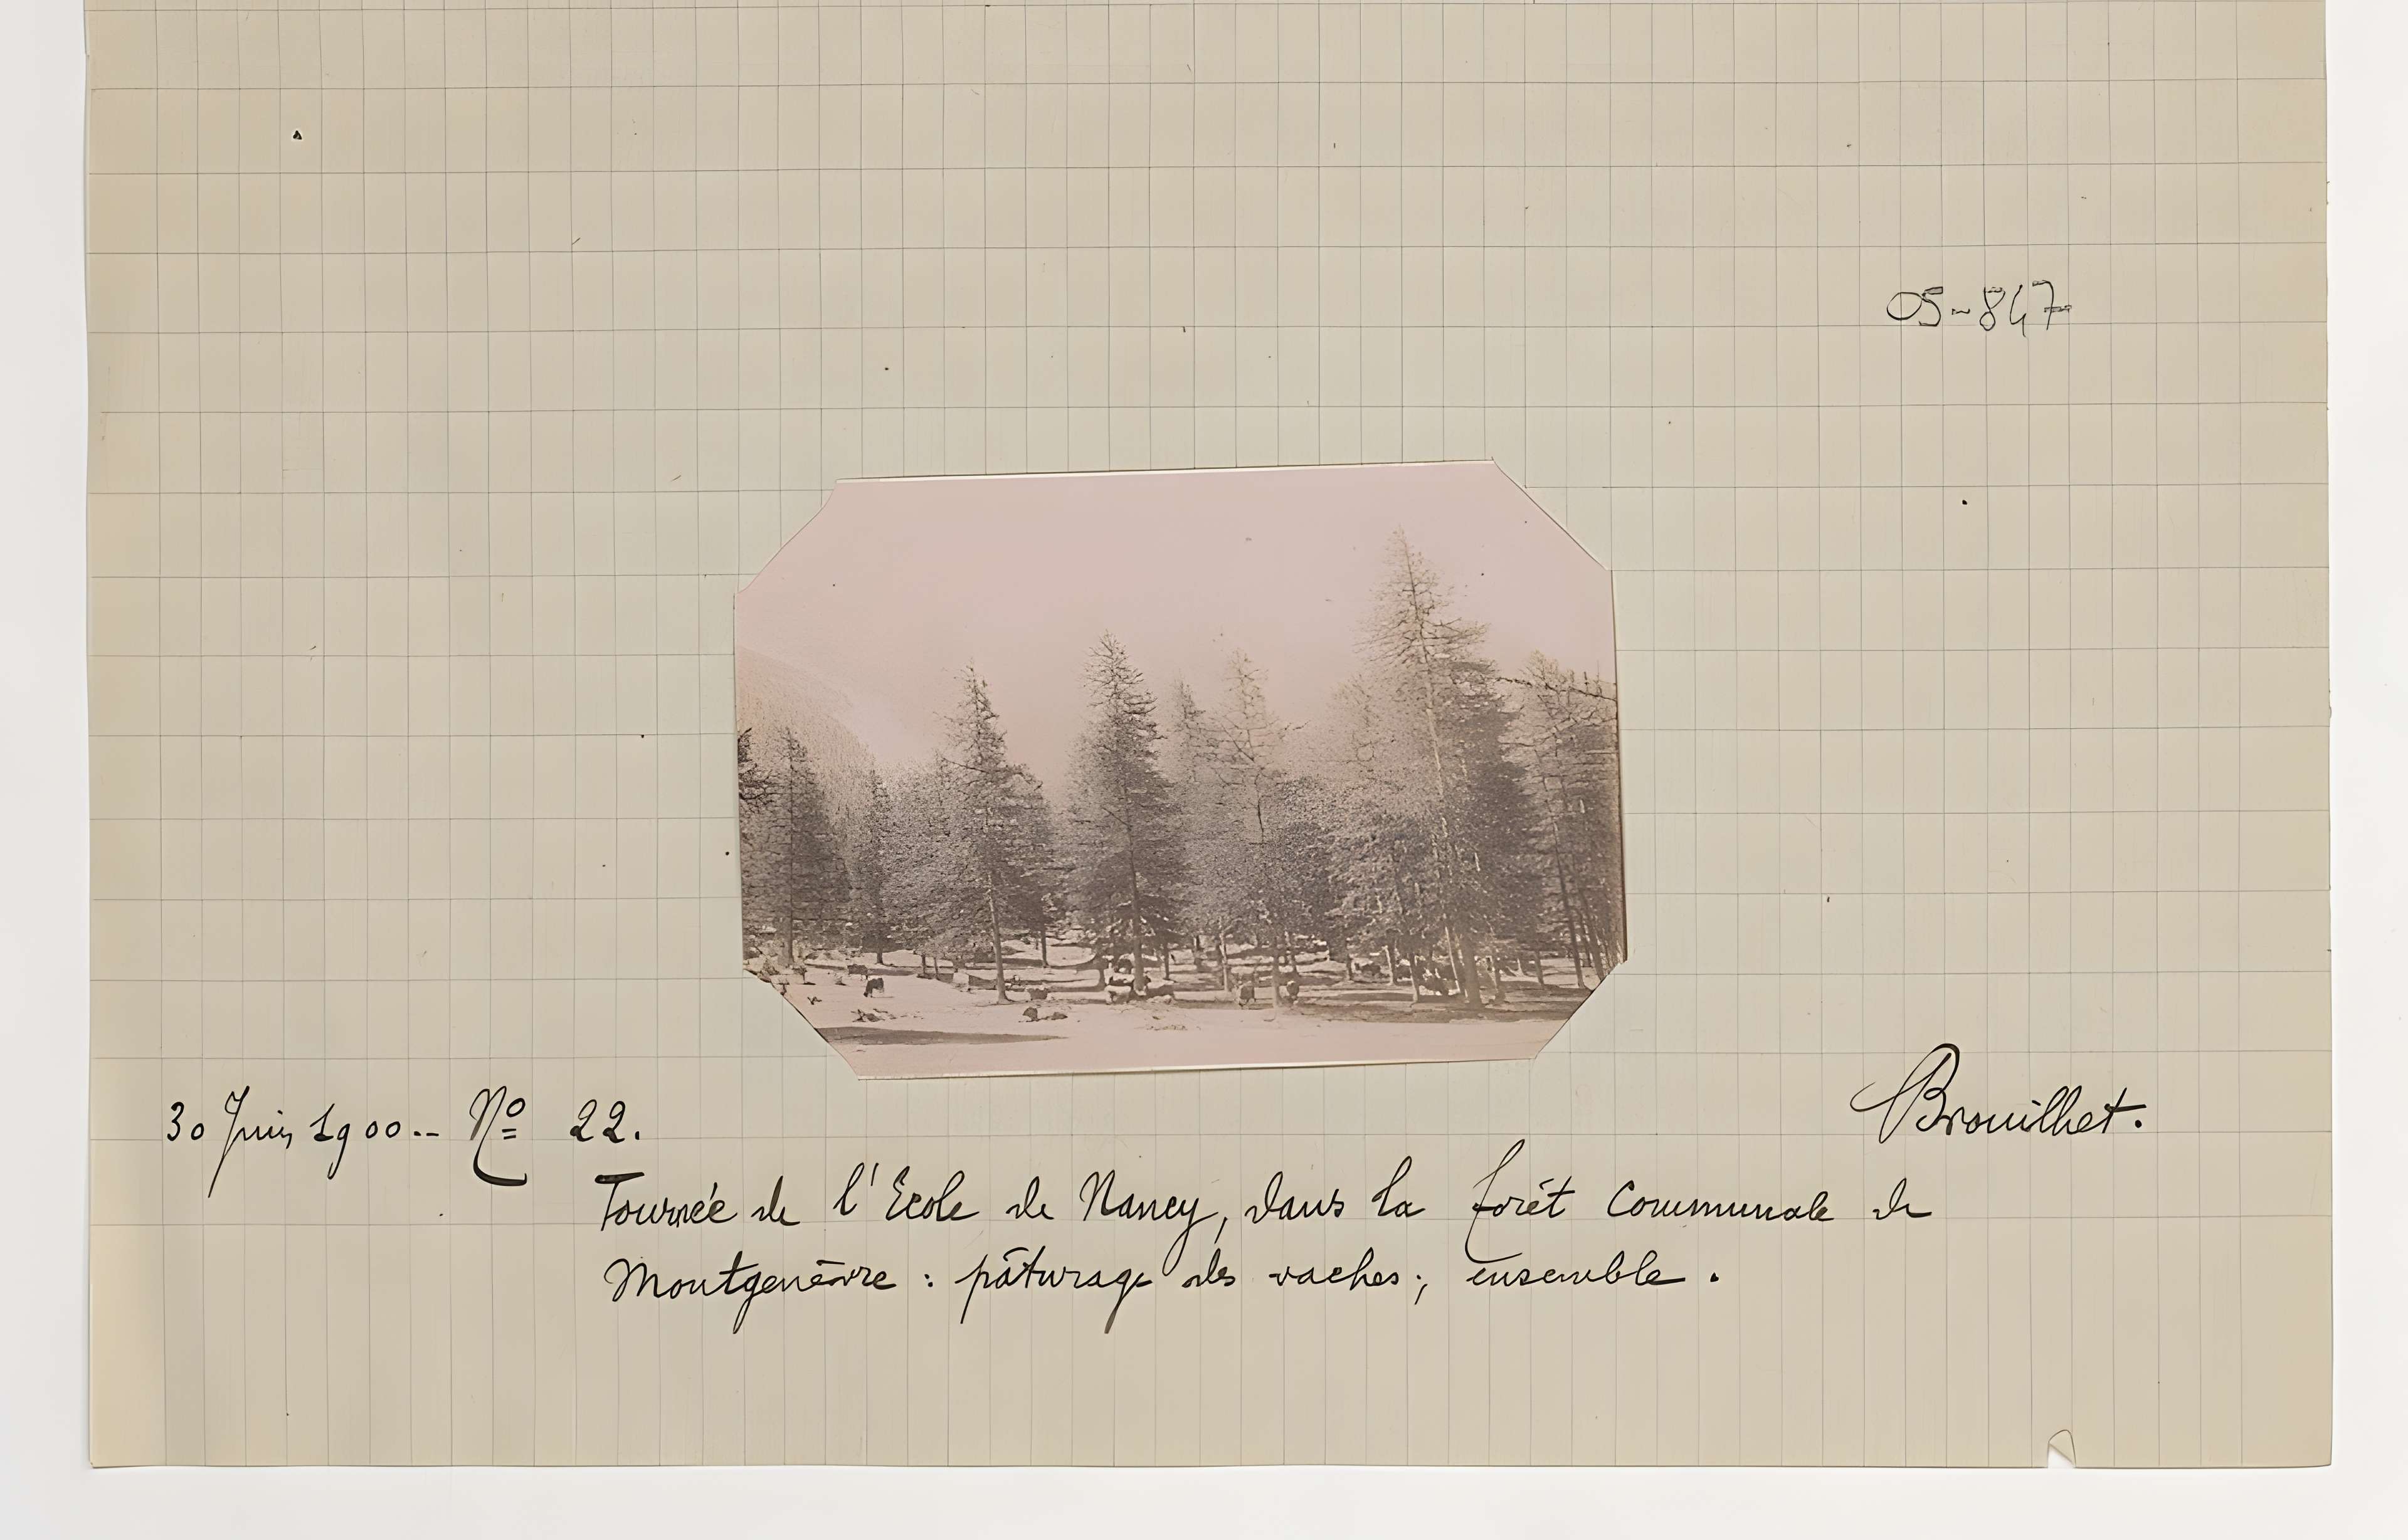 05-847
30 Juin 1900.. Nº 22. Brouilhet.
Tournée de l'Ecole de Nancy, dans la forêt communale de
Montgenèvre : pâturage des vaches ; ensemble.